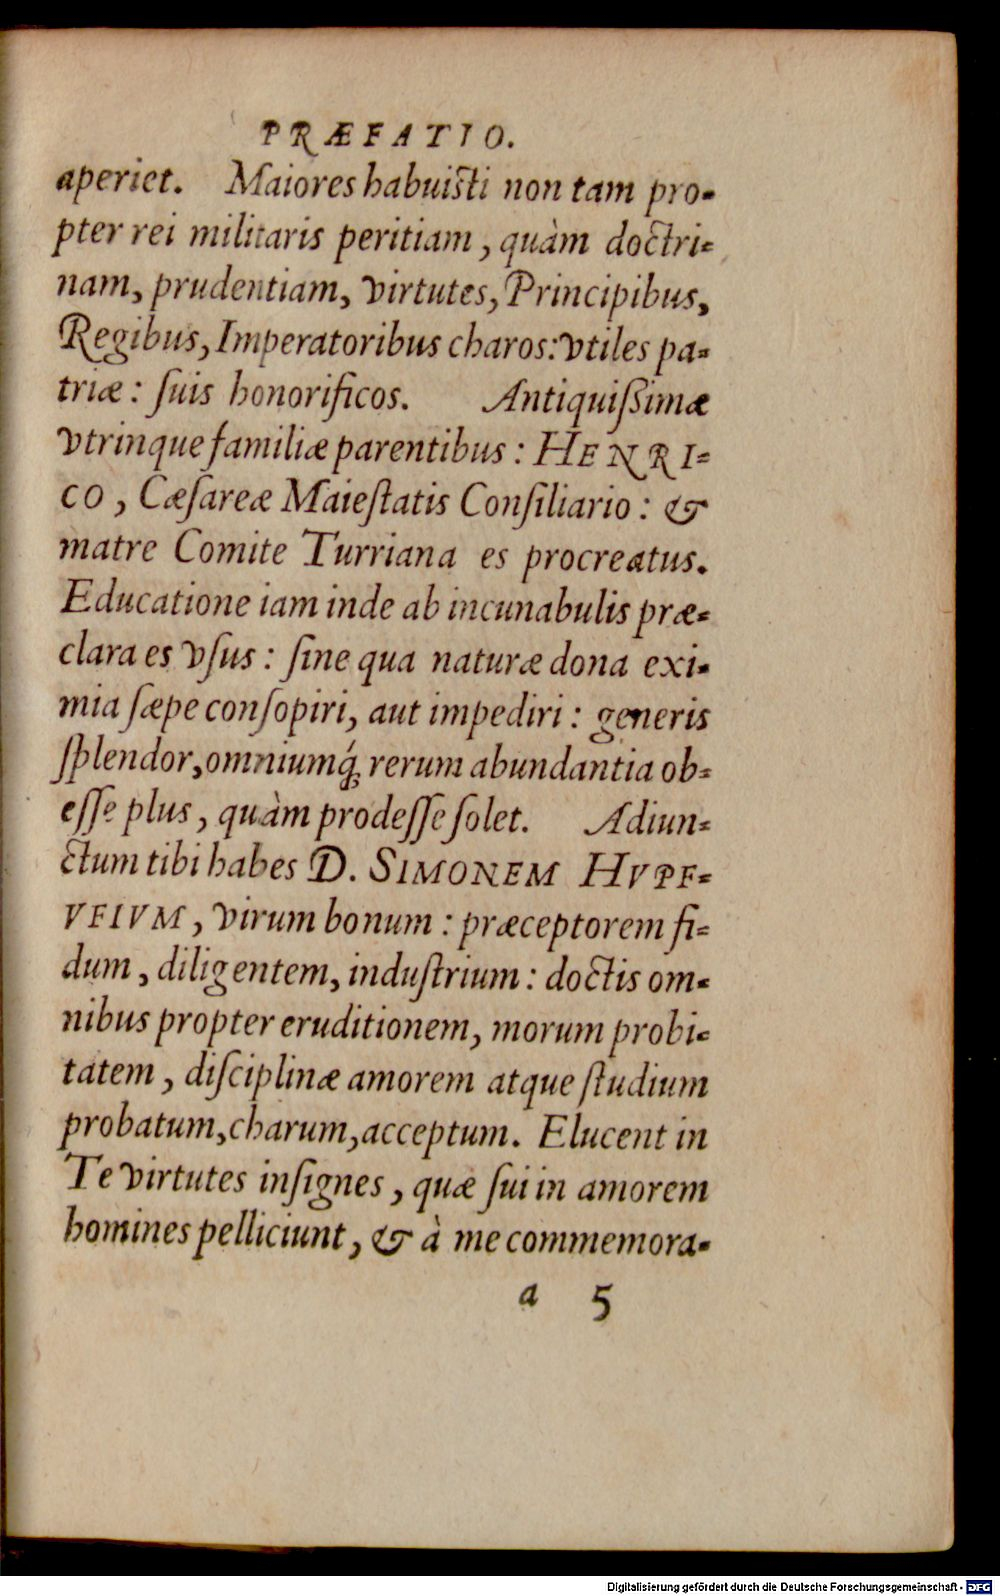 PRÆFATIO.
aperiet. Maiores habuisti non tam pro-
pter rei militaris peritiam, quàm doctri-
nam, prudentiam, virtutes, Principibus,
Regibus, Imperatoribus charos: vtiles pa-
triæ: ſuis honorificos. Antiquißimæ
vtrinque familiæ parentibus: HENRI-
CO, Cæſareæ Maieſtatis Conſiliario: &
matre Comite Turriana es procreatus.
Educatione iam inde ab incunabulis præ-
clara es vſus: ſine qua naturæ dona exi-
mia ſæpe conſopiri, aut impediri: generis
ſplendor, omniumq́; rerum abundantia ob-
eſſe plus, quàm prodeſſe ſolet. Adiun-
ctum tibi habes D. SIMONEM HVPF-
VFIVM, virum bonum: præceptorem fi-
dum, diligentem, induſtrium: doctis om-
nibus propter eruditionem, morum probi-
tatem, diſciplinæ amorem atque ſtudium
probatum, charum, acceptum. Elucent in
Te virtutes inſignes, quæ ſui in amorem
homines pelliciunt, & à me commemora-
a 5
Digitalisierung gefördert durch die Deutsche Forschungsgemeinschaft - DFG